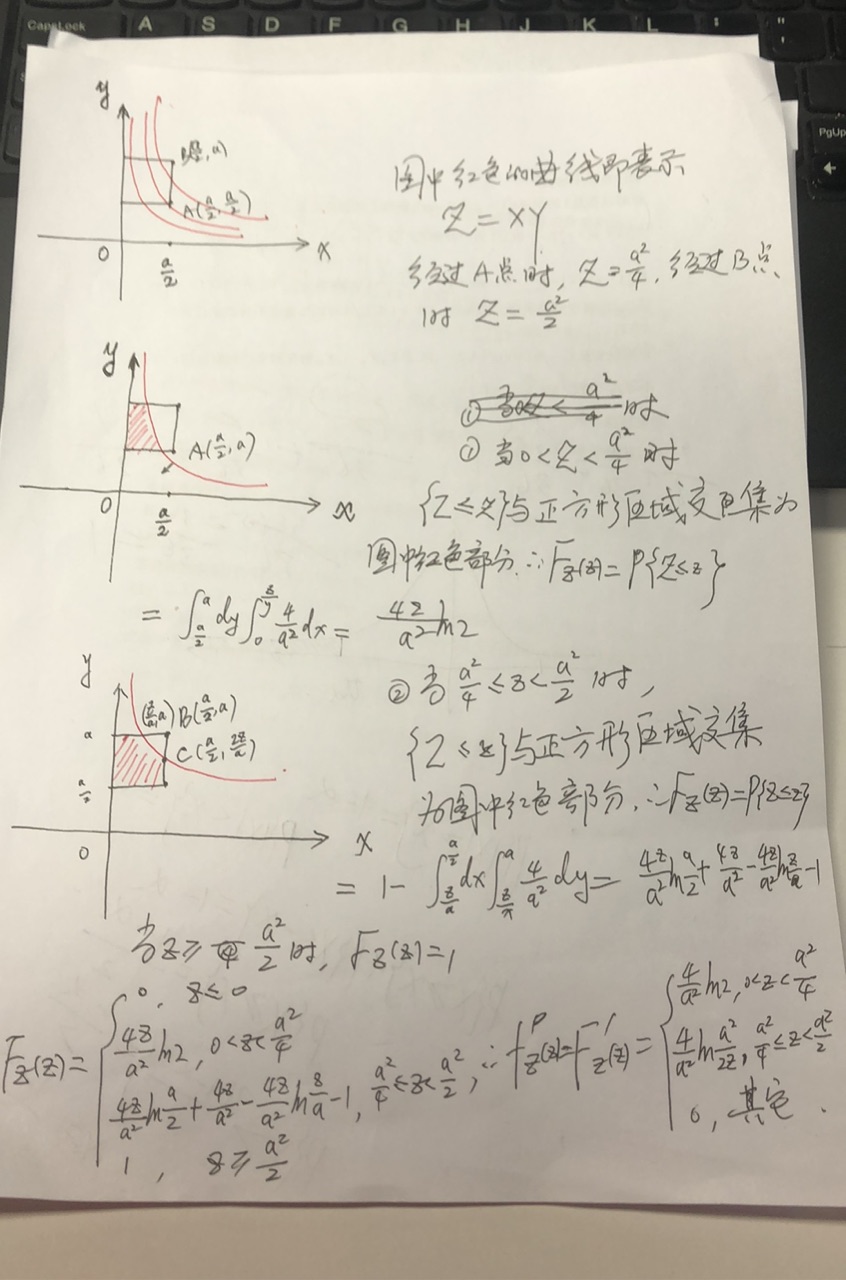 CapsLock A S D F G H J K L : "
PgUp
y
B(a/2, a)
A(a/2, a/2)
0 a/2 x
图中红色的曲线即表示
Z = XY
经过A点时, Z = a²/4, 经过B点
时 Z = a²/2
y
A(a/2, a)
0 a/2 x
① 当0<Z< a²/4 时
① 当 0<Z< a²/4 时
{Z≤z}与正方形区域交集为
图中红色部分. ∴F_Z(z) = P{Z≤z}
= ∫_{a/2}^{a} dy ∫_0^{z/y} 4/a² dx = 4z/a² ln2
② 当 a²/4 ≤ z < a²/2 时,
{Z ≤ z}与正方形区域交集
为图中红色部分, ∴F_Z(z)=P{Z≤z}
y
(z/a, a) B(a/2, a)
a
C(a/2, 2z/a)
a/2
0 x
= 1 - ∫_{z/a}^{a/2} dx ∫_{z/x}^{a} 4/a² dy = 4z/a² ln a/2 + 4z/a² - 4z/a² ln z/a - 1
当 z ≥ a²/2 时, F_Z(z) = 1
F_Z(z) = { 0, z ≤ 0
4z/a² ln2, 0<z< a²/4
4z/a² ln a/2 + 4z/a² - 4z/a² ln z/a - 1, a²/4 ≤ z < a²/2,
1, z ≥ a²/2
∴ f_Z^P(z) = F'_Z(z) = { 4/a² ln2, 0<z< a²/4
4/a² ln a²/2z, a²/4 ≤ z < a²/2
0, 其它.